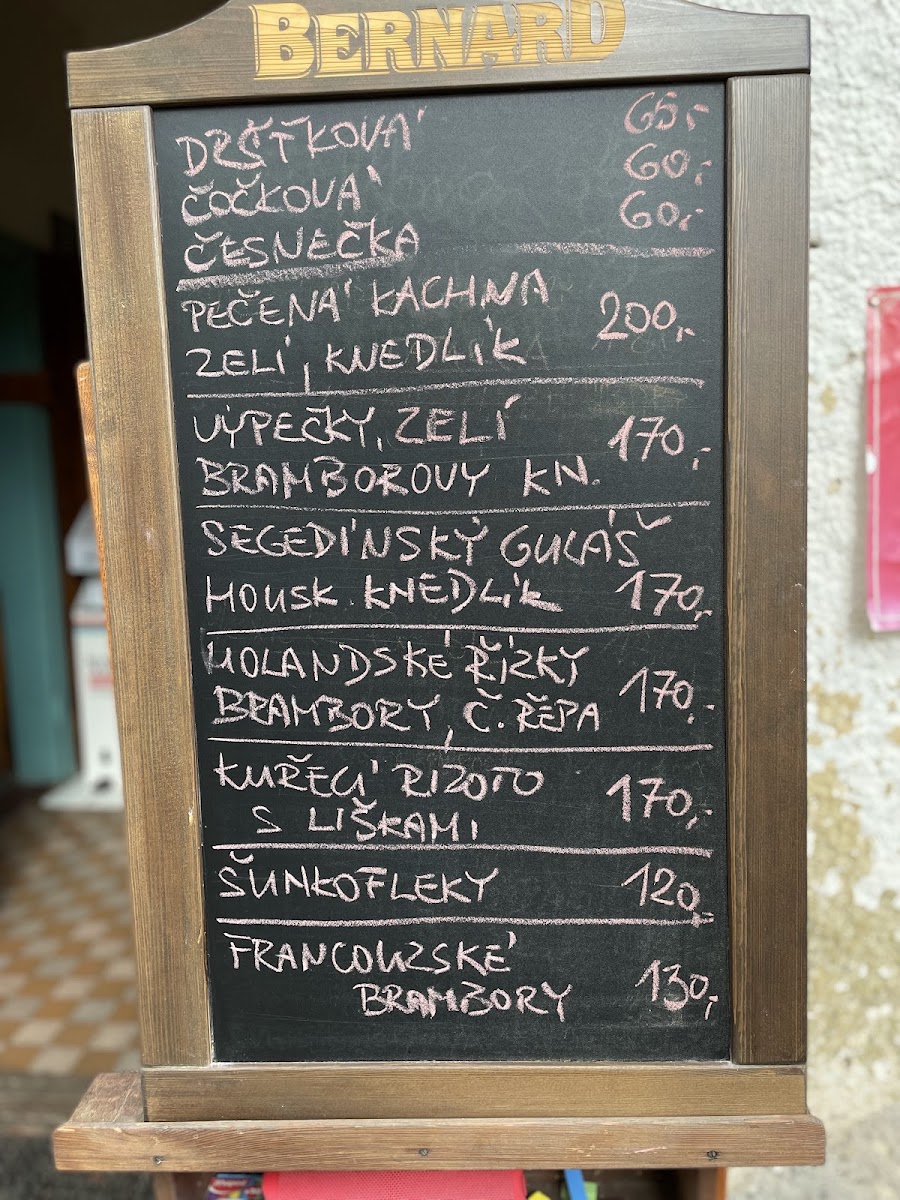 BERNARD
DRŠŤKOVÁ 65,-
ČOČKOVÁ 60,-
ČESNEČKA 60,-
PEČENÁ KACHNA
ZELÍ, KNEDLÍK 200,-
VÝPEČKY, ZELÍ 170,-
BRAMBOROVY KN.
SEGEDÍNSKÝ GULÁŠ
HOUSK. KNEDLÍK 170,-
HOLANDSKÉ ŘÍZKY
BRAMBORY, Č. ŘEPA 170,-
KUŘECÍ RIZOTO
S LIŠKAMI 170,-
ŠUNKOFLEKY 120,-
FRANCOUZSKÉ
BRAMBORY 130,-